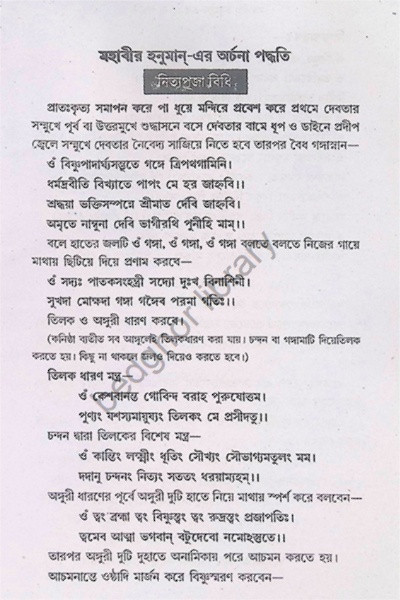 মহাবীর হনুমান্-এর অর্চনা পদ্ধতি
নিত্যপূজা বিধি
প্রাতঃকৃত্য সমাপন করে পা ধুয়ে মন্দিরে প্রবেশ করে প্রথমে দেবতার
সম্মুখে পূর্ব বা উত্তরমুখে শুদ্ধাসনে বসে দেবতার বামে ধূপ ও ডাইনে প্রদীপ
জ্বেলে সম্মুখে দেবতার নৈবেদ্য সাজিয়ে নিতে হবে তারপর বৈধ গঙ্গাস্নান—
ওঁ বিষ্ণুপাদার্ঘ্যসম্ভূতে গঙ্গে ত্রিপথগামিনি।
ধর্মদ্রবীতি বিখ্যাতে পাপং মে হর জাহ্নবি।
শ্রদ্ধয়া ভক্তিসম্পন্নে শ্রীমাত র্দেবি জাহ্নবি।
অমৃতে নাম্বুনা দেবি ভাগীরথি পুনীহি মাম্।।
বলে হাতের জলটি ওঁ গঙ্গা, ওঁ গঙ্গা, ওঁ গঙ্গা বলতে বলতে নিজের গায়ে
মাথায় ছিটিয়ে দিয়ে প্রণাম করবে—
ওঁ সদ্যঃ পাতকসংহন্ত্রী সদ্যো দুঃখ বিনাশিনী।
সুখদা মোক্ষদা গঙ্গা গঙ্গৈব পরমা গতিঃ।।
তিলক ও অঙ্গুরী ধারণ করবে।
(কনিষ্ঠা ব্যতীত সব আঙ্গুলেই তিলকধারণ করা যায়। চন্দন বা গঙ্গামাটি দিয়েতিলক
করতে হয়। কিছু না থাকলে জলও দিয়েও করতে হবে।)
তিলক ধারণ মন্ত্র—
ওঁ কেশবানন্ত গোবিন্দ বরাহ পুরুষোত্তম।
পুণ্যং যশস্যমায়ুষ্যং তিলকং মে প্রসীদতু।।
চন্দন দ্বারা তিলকের বিশেষ মন্ত্র—
ওঁ কান্তিং লক্ষ্মীং ধৃতিং সৌখ্যং সৌভাগ্যমতুলং মম।
দদানু চন্দনং নিত্যং সততং ধরয়াম্যহম্।।
অঙ্গুরী ধারণের পূর্বে অঙ্গুরী দুটি হাতে নিয়ে মাথায় স্পর্শ করে বলবেন—
ওঁ ত্বং ব্রহ্মা ত্বং বিষ্ণুস্ত্বং ত্বং রুদ্রস্ত্বং প্রজাপতিঃ।
ত্বমেব আত্মা ভগবান্ বটুদেবো নমোঽস্তুতে।।
তারপর অঙ্গুরী দুটি দুহাতে অনামিকায় পরে আচমন করতে হয়।
আচমনান্তে ওষ্ঠাদি মার্জন করে বিষ্ণুস্মরণ করবেন—